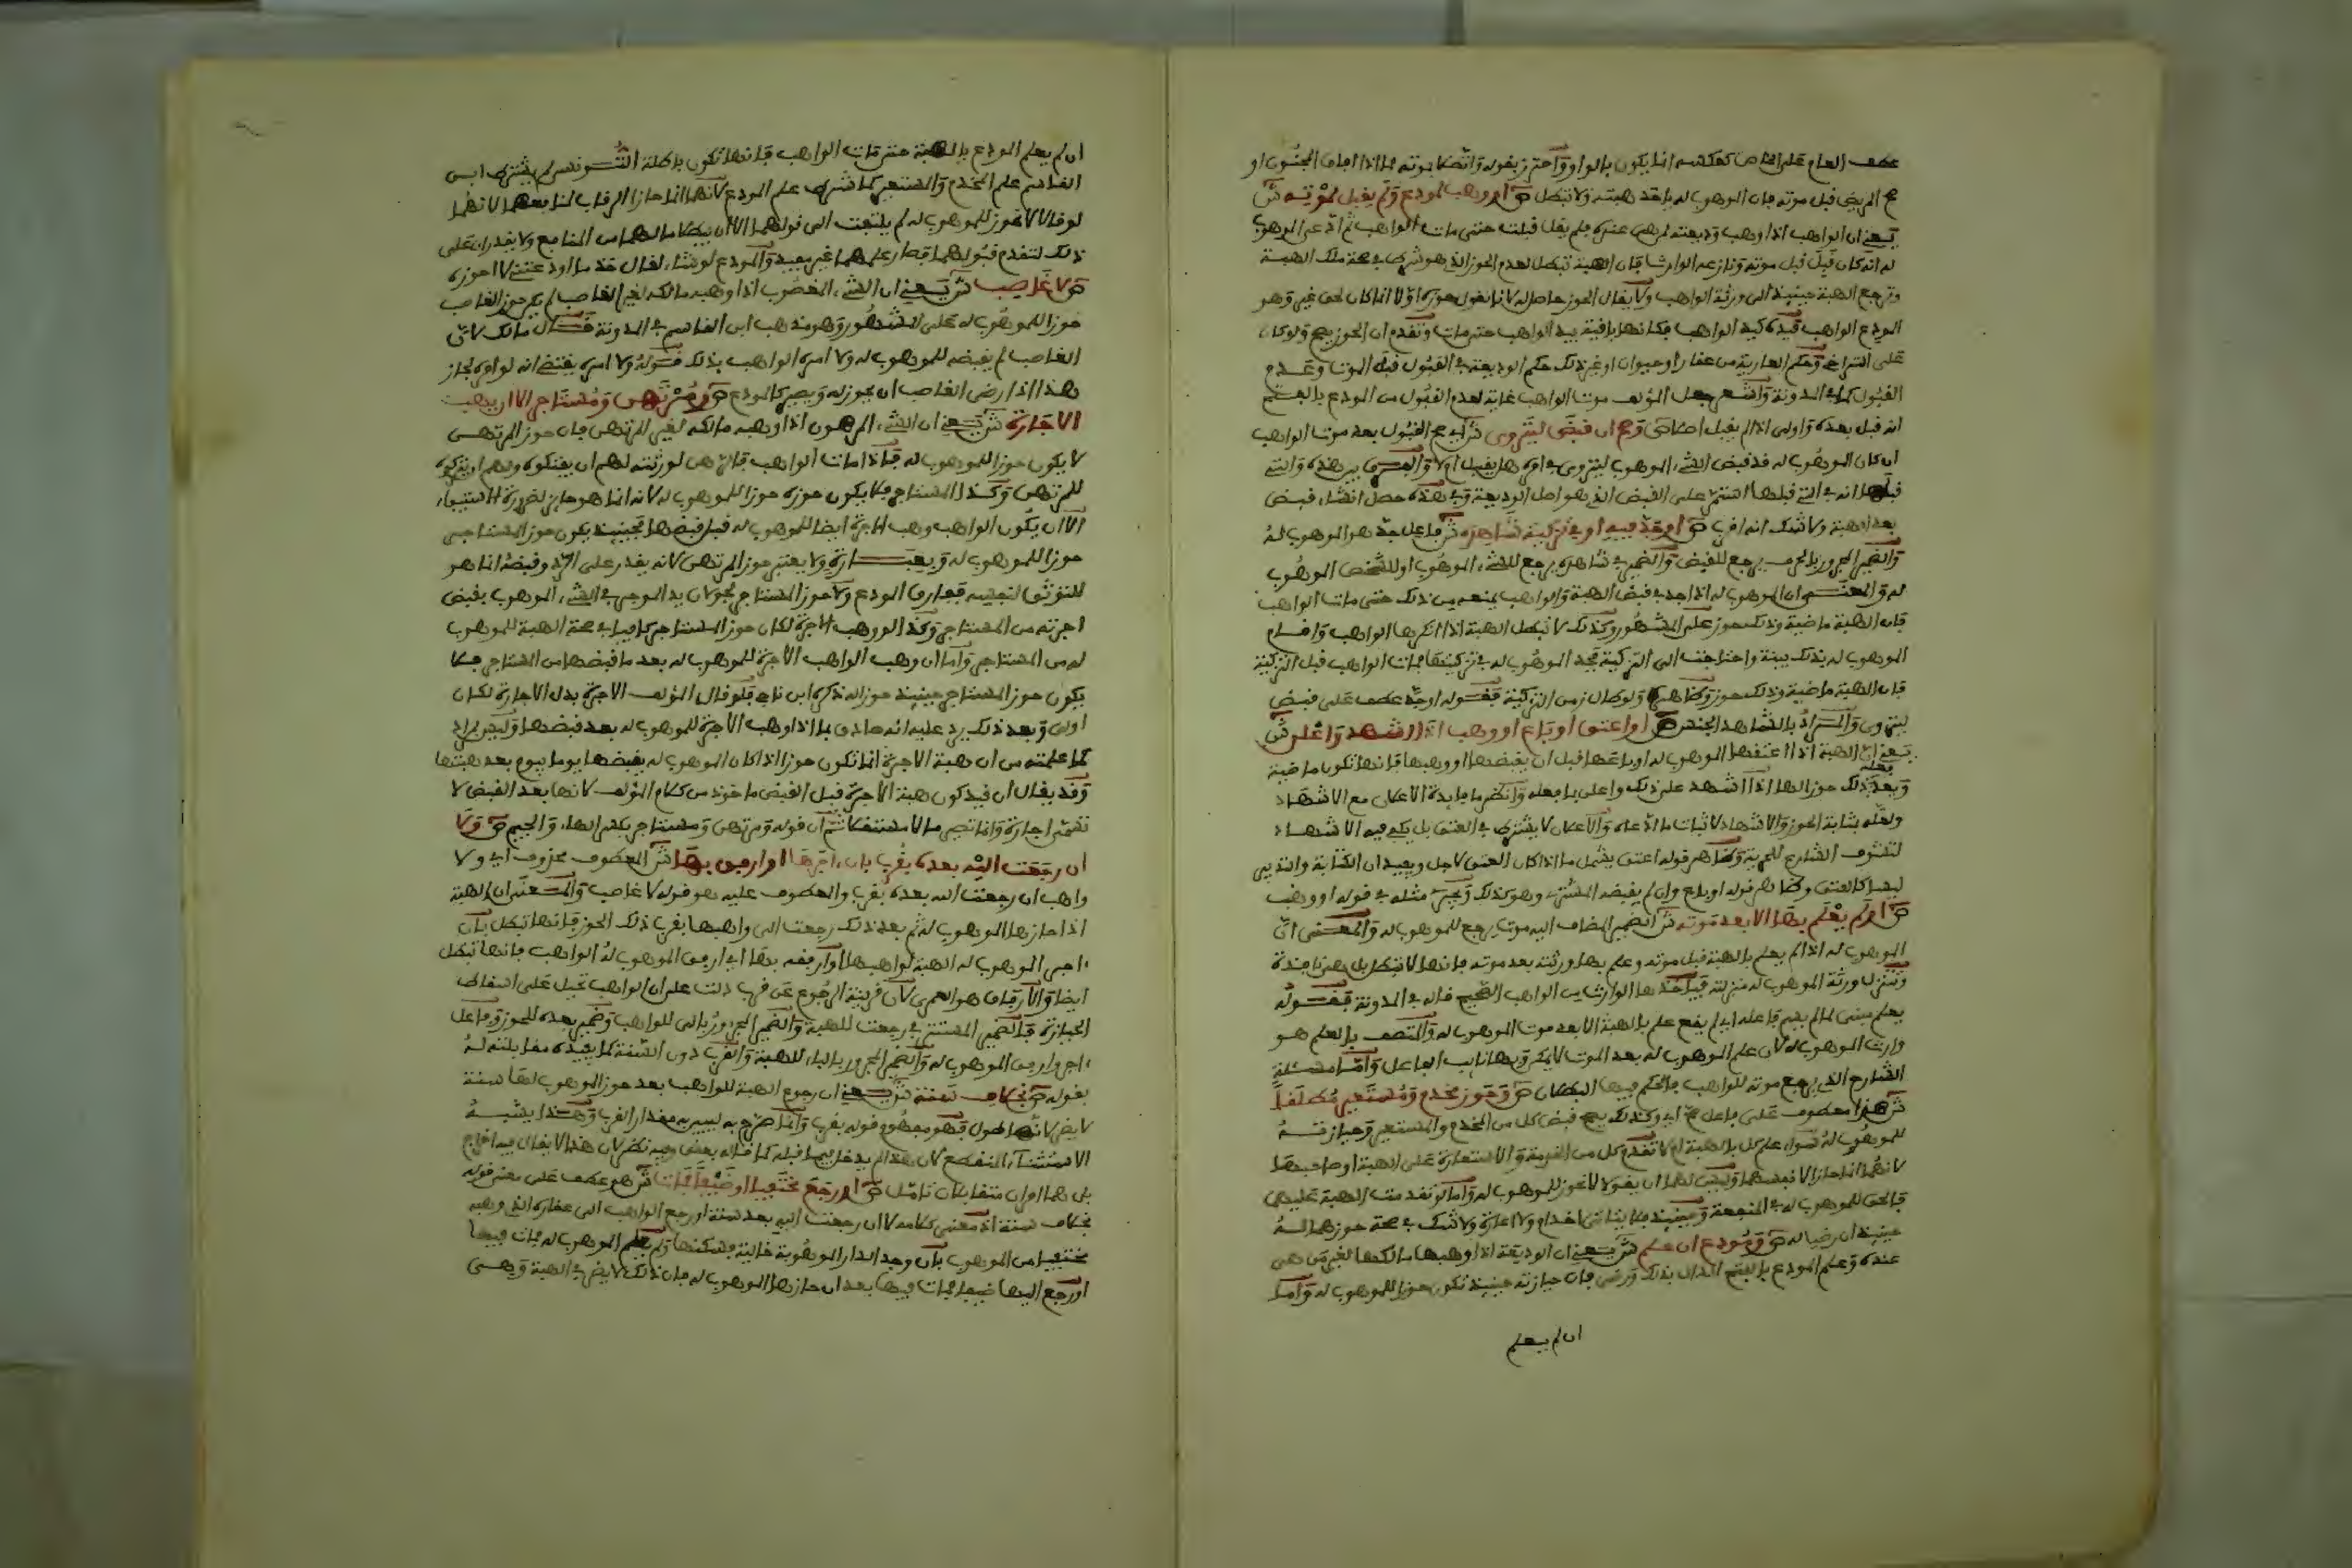 عطف العام على الخاص كعكسه انما يكون بالواو واحترز بقوله واتصلا بموته مما اذا افاق المجنون او
صح المريض قبل موته فان الموهوب له ياخذ هبته ولا تبطل ص او وهب لمودع ولم يقبل لموته ش
يعني ان الواهب اذا وهب وديعته لمن هي عنده فلم يقل قبلت حتى مات الواهب ثم ادعى الموهوب
له انه كان قبل قبل موته ونازعه الوارث فان الهبة تبطل لعدم الحوز الذي هو شرط في صحة ملك الهبة
وترجع الهبة حينئذ الى ورثة الواهب ولا يقال الحوز حاصل له لانا نقول حوزه اولا انما كان لحق غيره وهو
المودع الواهب فيده كيد الواهب فكانها باقية بيد الواهب حتى مات وتقدم ان الحوز يصح ولو كان
على التراخي وحكم العارية من عقار او حيوان او غير ذلك حكم الوديعة في القبول قبل الموت وعدم
القبول كما في المدونة واشعر جعل المؤلف موت الواهب غاية لعدم القبول من المودع بالعلم
انه قبل بعده واولى اذا لم يقبل اصلا ص وصح ان قبض ليتروى ش اي صح القبول بعد موت الواهب
ان كان الموهوب له قد قبض الشيء الموهوب ليتروى في امره هل يقبل او لا والفرق بين هذه والتي
قبلها انه في التي قبلها استمر على القبض الذي هو اصل الوديعة وفي هذه حصل انشاء قبض
بعد الهبة ولا شك انه اقوى ص او جد فيه او في تزكية شاهده ش فاعل جد هو الموهوب له
والضمير المجرور بالحرف يرجع للقبض والضمير في شاهده يرجع للشيء الموهوب او للشخص الموهوب
له والمعنى ان الموهوب له اذا جد في قبض الهبة والواهب يمنعه من ذلك حتى مات الواهب
فان الهبة ماضية وذلك حوز على المشهور وكذلك لا تبطل الهبة اذا انكرها الواهب واقام
الموهوب له بذلك بينة واحتاجت الى التزكية فجد الموهوب له في تزكيتها فمات الواهب قبل التزكية
فان الهبة ماضية وذلك حوز وظاهره ولو طال زمن التزكية فقوله او جد عطف على قبض
ليتروى والمراد بالشاهد الجنس ص او اعتق او باع او وهب اذا اشهد واعلن ش
يعني ان الهبة اذا اعتقها الموهوب له او باعها قبل ان يقبضها او وهبها فانها تكون ماضية
ويعد فعله ذلك حوز الها اذا اشهد على ذلك واعلن بما فعله وانظر ما فائدة الاعلان مع الاشهاد
ولعله بمثابة الحوز والاشهاد لاثبات ما ادعاه والاعلان لا يشترط في العتق بل يكفي فيه الاشهاد
لتشوف الشارع للحرية وظاهر قوله اعتق يشمل ما اذا كان العتق لاجل ويفيد ان الكتابة والتدبير
ليسا كالعتق وظاهر قوله او باع وان لم يقبضه المشتري وهو كذلك ويجري مثله في قوله او وهب
ص او لم يعلم بها الا بعد موته ش الضمير المضاف اليه موت يرجع للموهوب له والمعنى ان
الموهوب له اذا لم يعلم بالهبة قبل موته وعلم بها ورثته بعد موته فانها لا تبطل بل هي نافذة
وتنزل ورثة الموهوب له منزلته فياخذها الوارث من الواهب الصحيح قاله في المدونة فقوله
يعلم مبني لما لم يسم فاعله اي لم يقع علم بالهبة الا بعد موت الموهوب له والمتصف بالعلم هو
وارث الموهوب له لان علم الموهوب له بعد الموت لا يمكن وبها نائب الفاعل واما مسئلة
الشارح الذي يرجع موته للواهب فالحكم فيها البطلان ص وحوز مخدم ومستعير مطلقا
ش هذا معطوف على فاعل صح اي وكذلك يصح قبض كل من المخدم والمستعير وحيازته
للموهوب له سواء علم كل بالهبة ام لا تقدم كل من الخدمة والاستعارة على الهبة او صاحبها
لانهما انما حازا لانفسهما وليس لهما ان يقولا لا نحوز للموهوب له واما لو تقدمت الهبة عليهما
فالحق للموهوب له في المنفعة وحينئذ فلا يتاتى اخدام ولا اعارة ولا شك في صحة حوزهما له
حينئذ ان رضيا له ص ومودع ان علم ش يعني ان الوديعة اذا وهبها مالكها لغير من هي
عنده وعلم المودع بالفتح الدال بذلك ورضي فان حيازته حينئذ تكون حوزا للموهوب له واما
ان لم يعلم
ان لم يعلم المودع بالهبة حتى مات الواهب فانها تكون باطلة التونسي لم يشترط ابن
القاسم علم المخدم والمستعير كما شرط علم المودع لانهما انما حازا الرقاب لمنافعهما لانهما
لو قالا لا نحوز للموهوب له لم يلتفت الى قولهما الا ان يبطلا ما لهما من المنافع ولا يقدران على
ذلك لتقدم قبولهما فصار علمهما غير مفيد والمودع لو شاء لقال خذ ما اودعتني لا احوزه
ص لا غاصب ش يعني ان الشيء المغصوب اذا وهبه مالكه لغير الغاصب لم يكن حوز الغاصب
حوزا للموهوب له على المشهور وهو مذهب ابن القاسم في المدونة قال مالك لان
الغاصب لم يقبضه للموهوب له ولا امره الواهب بذلك فقوله ولا امره يقتضي انه لو امره لجاز
هذا اذا رضي الغاصب ان يحوز له ويصير كالمودع ص ومرتهن ومستاجر الا ان يهب
الاجارة ش يعني ان الشيء المرهون اذا وهبه مالكه لغير المرتهن فان حوز المرتهن
لا يكون حوزا للموهوب له فاذا مات الواهب فالرهن لورثته لهم ان يفتكوه ولهم ان يتركوه
للمرتهن وكذا المستاجر فلا يكون حوزه حوزا للموهوب له لانه انما هو حائز لضرورة الاستيفاء
الا ان يكون الواهب وهب الاجرة ايضا للموهوب له قبل قبضها فحينئذ يكون حوز المستاجر
حوزا للموهوب له وبعبارة ولا يعتبر حوز المرتهن لانه يقدر على الرد وقبضه انما هو
للتوثق لنفسه ففارق المودع ولا حوز المستاجر لجولان يد الموجر في الشيء الموهوب بقبض
اجرته من المستاجر وكذا لو وهب الاجرة لكان حوز المستاجر كافيا في صحة الهبة للموهوب
له من المستاجر واما ان وهب الواهب الاجرة للموهوب له بعد ما قبضها من المستاجر فلا
يكون حوز المستاجر حينئذ حوزا له ذكره ابن ناجي فلو قال المؤلف الاجرة بدل الاجارة لكان
اولى وبعد ذلك يرد عليه انه صادق بما اذا وهب الاجرة للموهوب له بعد قبضها وليس بمراد
كما علمته من ان هبة الاجرة انما تكون حوزا اذا كان الموهوب له يقبضها يوما بيوم بعد هبتها
وقد يقال ان قيد كون هبة الاجرة قبل القبض ماخوذ من كلام المؤلف لانها بعد القبض لا
تسمى اجارة وانما تصير مالا مستقلا ثم ان قوله ومرتهن ومستاجر بكسر الهاء والجيم ص ولا
ان رجعت اليه بعده بقرب بان اجرها او ارفق بها ش المعطوف محذوف اي ولا
واهب ان رجعت اليه بعده بقرب والمعطوف عليه هو قوله لا غاصب والمعنى ان الهبة
اذا حازها الموهوب له ثم بعد ذلك رجعت الى واهبها بقرب ذلك الحوز فانها تبطل بان
اجر الموهوب له الهبة لواهبها او ارفقه بها اي ارفق الموهوب له الواهب فانها تبطل
ايضا والارفاق هو العمرى لان قرينة الرجوع عن قرب دلت على ان الواهب تحيل على اسقاط
الحيازة فالضمير المستتر في رجعت للهبة والضمير المجرور بالى للواهب وضمير بعده للحوز وفاعل
اجر وارفق الموهوب له والضمير المجرور بالباء للهبة والقرب دون السنة كما يفيده مقابلته له
بقوله ص بخلاف سنة ش يعني ان رجوع الهبة للواهب بعد حوز الموهوب لها سنة
لا يضر لانه طول فهو مفهوم قوله بقرب وانما صرح به ليبين به مقدار القرب وهذا يشبه
الاستثناء المنقطع لان هذا لم يدخل فيما قبله كما قاله بعض وفيه نظر لان هذا لا يقال فيه اخراج
بل هما امران متقابلان تامل ص او رجع مختفيا او ضيفا فمات ش هو عطف على معنى قوله
بخلاف سنة اذ معنى كلامه لا ان رجعت اليه بعد سنة او رجع الواهب الى عقاره الذي وهبه
مختفيا من الموهوب بان وجد الدار الموهوبة خالية فسكنها ولم يعلم الموهوب له فمات فيها
او رجع اليها ضيفا فمات فيها بعد ان حازها الموهوب له فان ذلك لا يضر في الهبة وهي